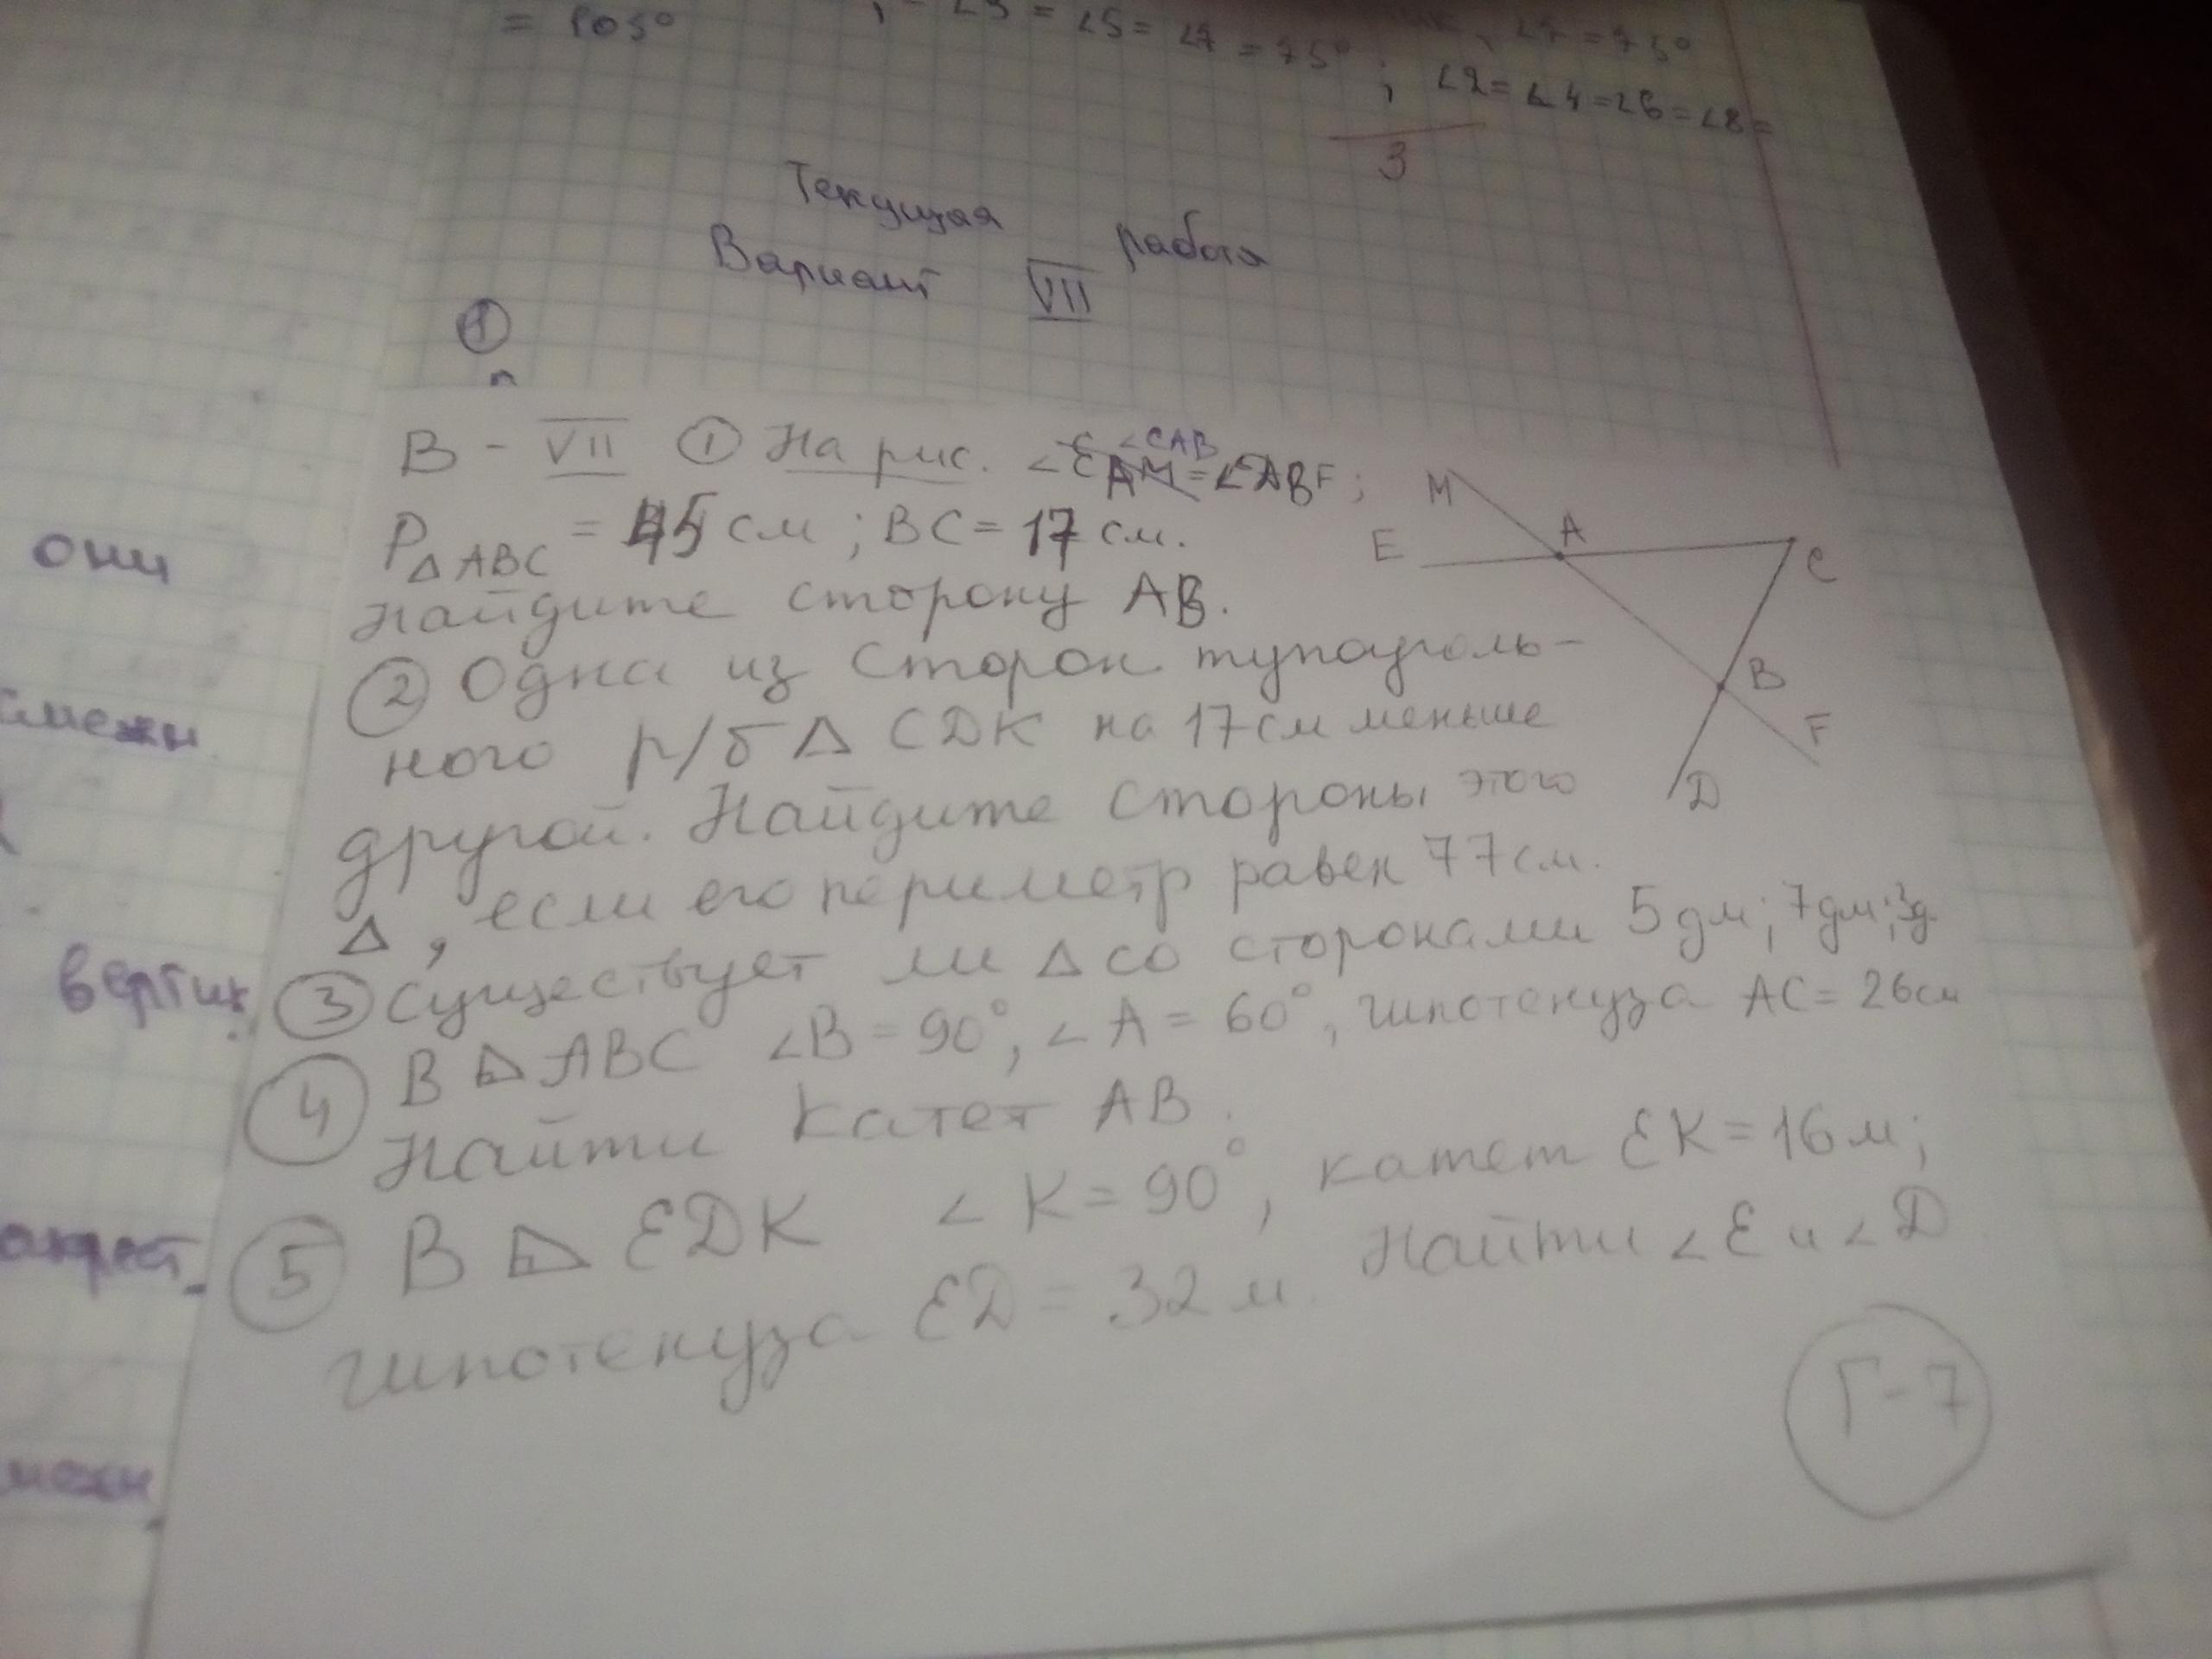 = 105°
∠3 = ∠5 = ∠7 = 75° ; ∠7 = 75°
∠2 = ∠4 = ∠6 = ∠8 =
3
Текущая работа
Вариант VII
①
они
смежн
вертик
накрест
В - VII ① На рис. ∠CAB = ∠ABF;
P△ABC = 45 см ; BC = 17 см.
Найдите сторону AB.
② Одна из сторон тупоуголь-
ного р/б △ CDK на 17 см меньше
другой. Найдите стороны этого
△, если его периметр равен 77 см.
③ Существует ли △ со сторонами 5 дм; 7 дм; 3 д
④ В ⊿ ABC ∠B = 90°, ∠A = 60°, гипотенуза AC = 26 см
Найти катет AB.
⑤ В ⊿ EDK ∠K = 90°, катет EK = 16 м;
гипотенуза ED = 32 м. Найти ∠E и ∠D
Г-7
M
E
A
C
B
F
D